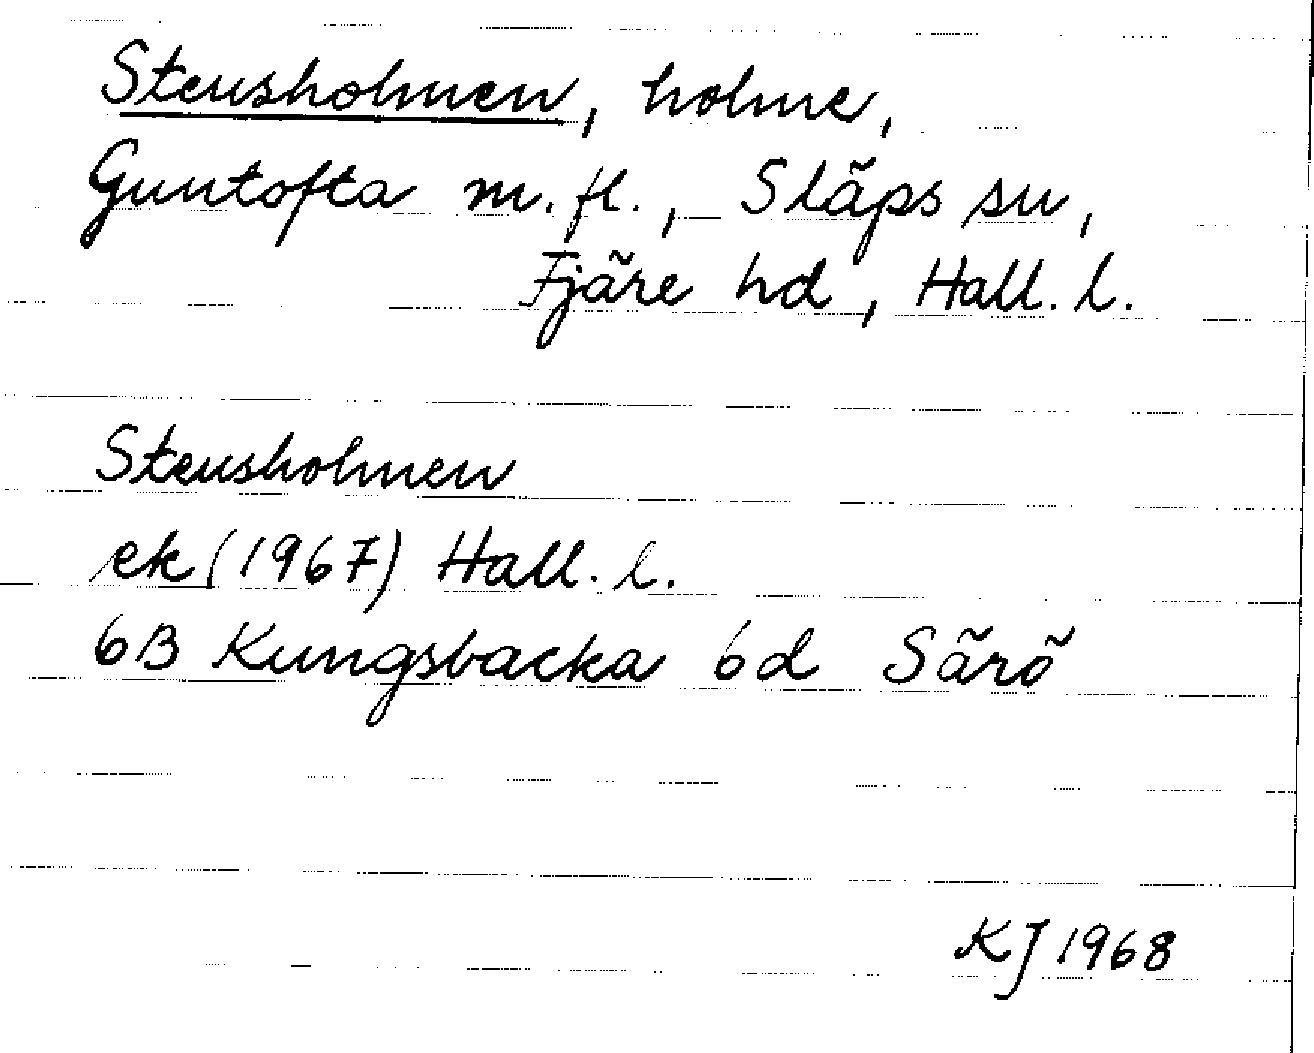 Stensholmen, holme,
Guntofta m.fl., Släps sn,
Fjäre hd, Hall. l.
Stensholmen
ek (1967) Hall. l.
6B Kungsbacka 6d Särö
KJ 1968